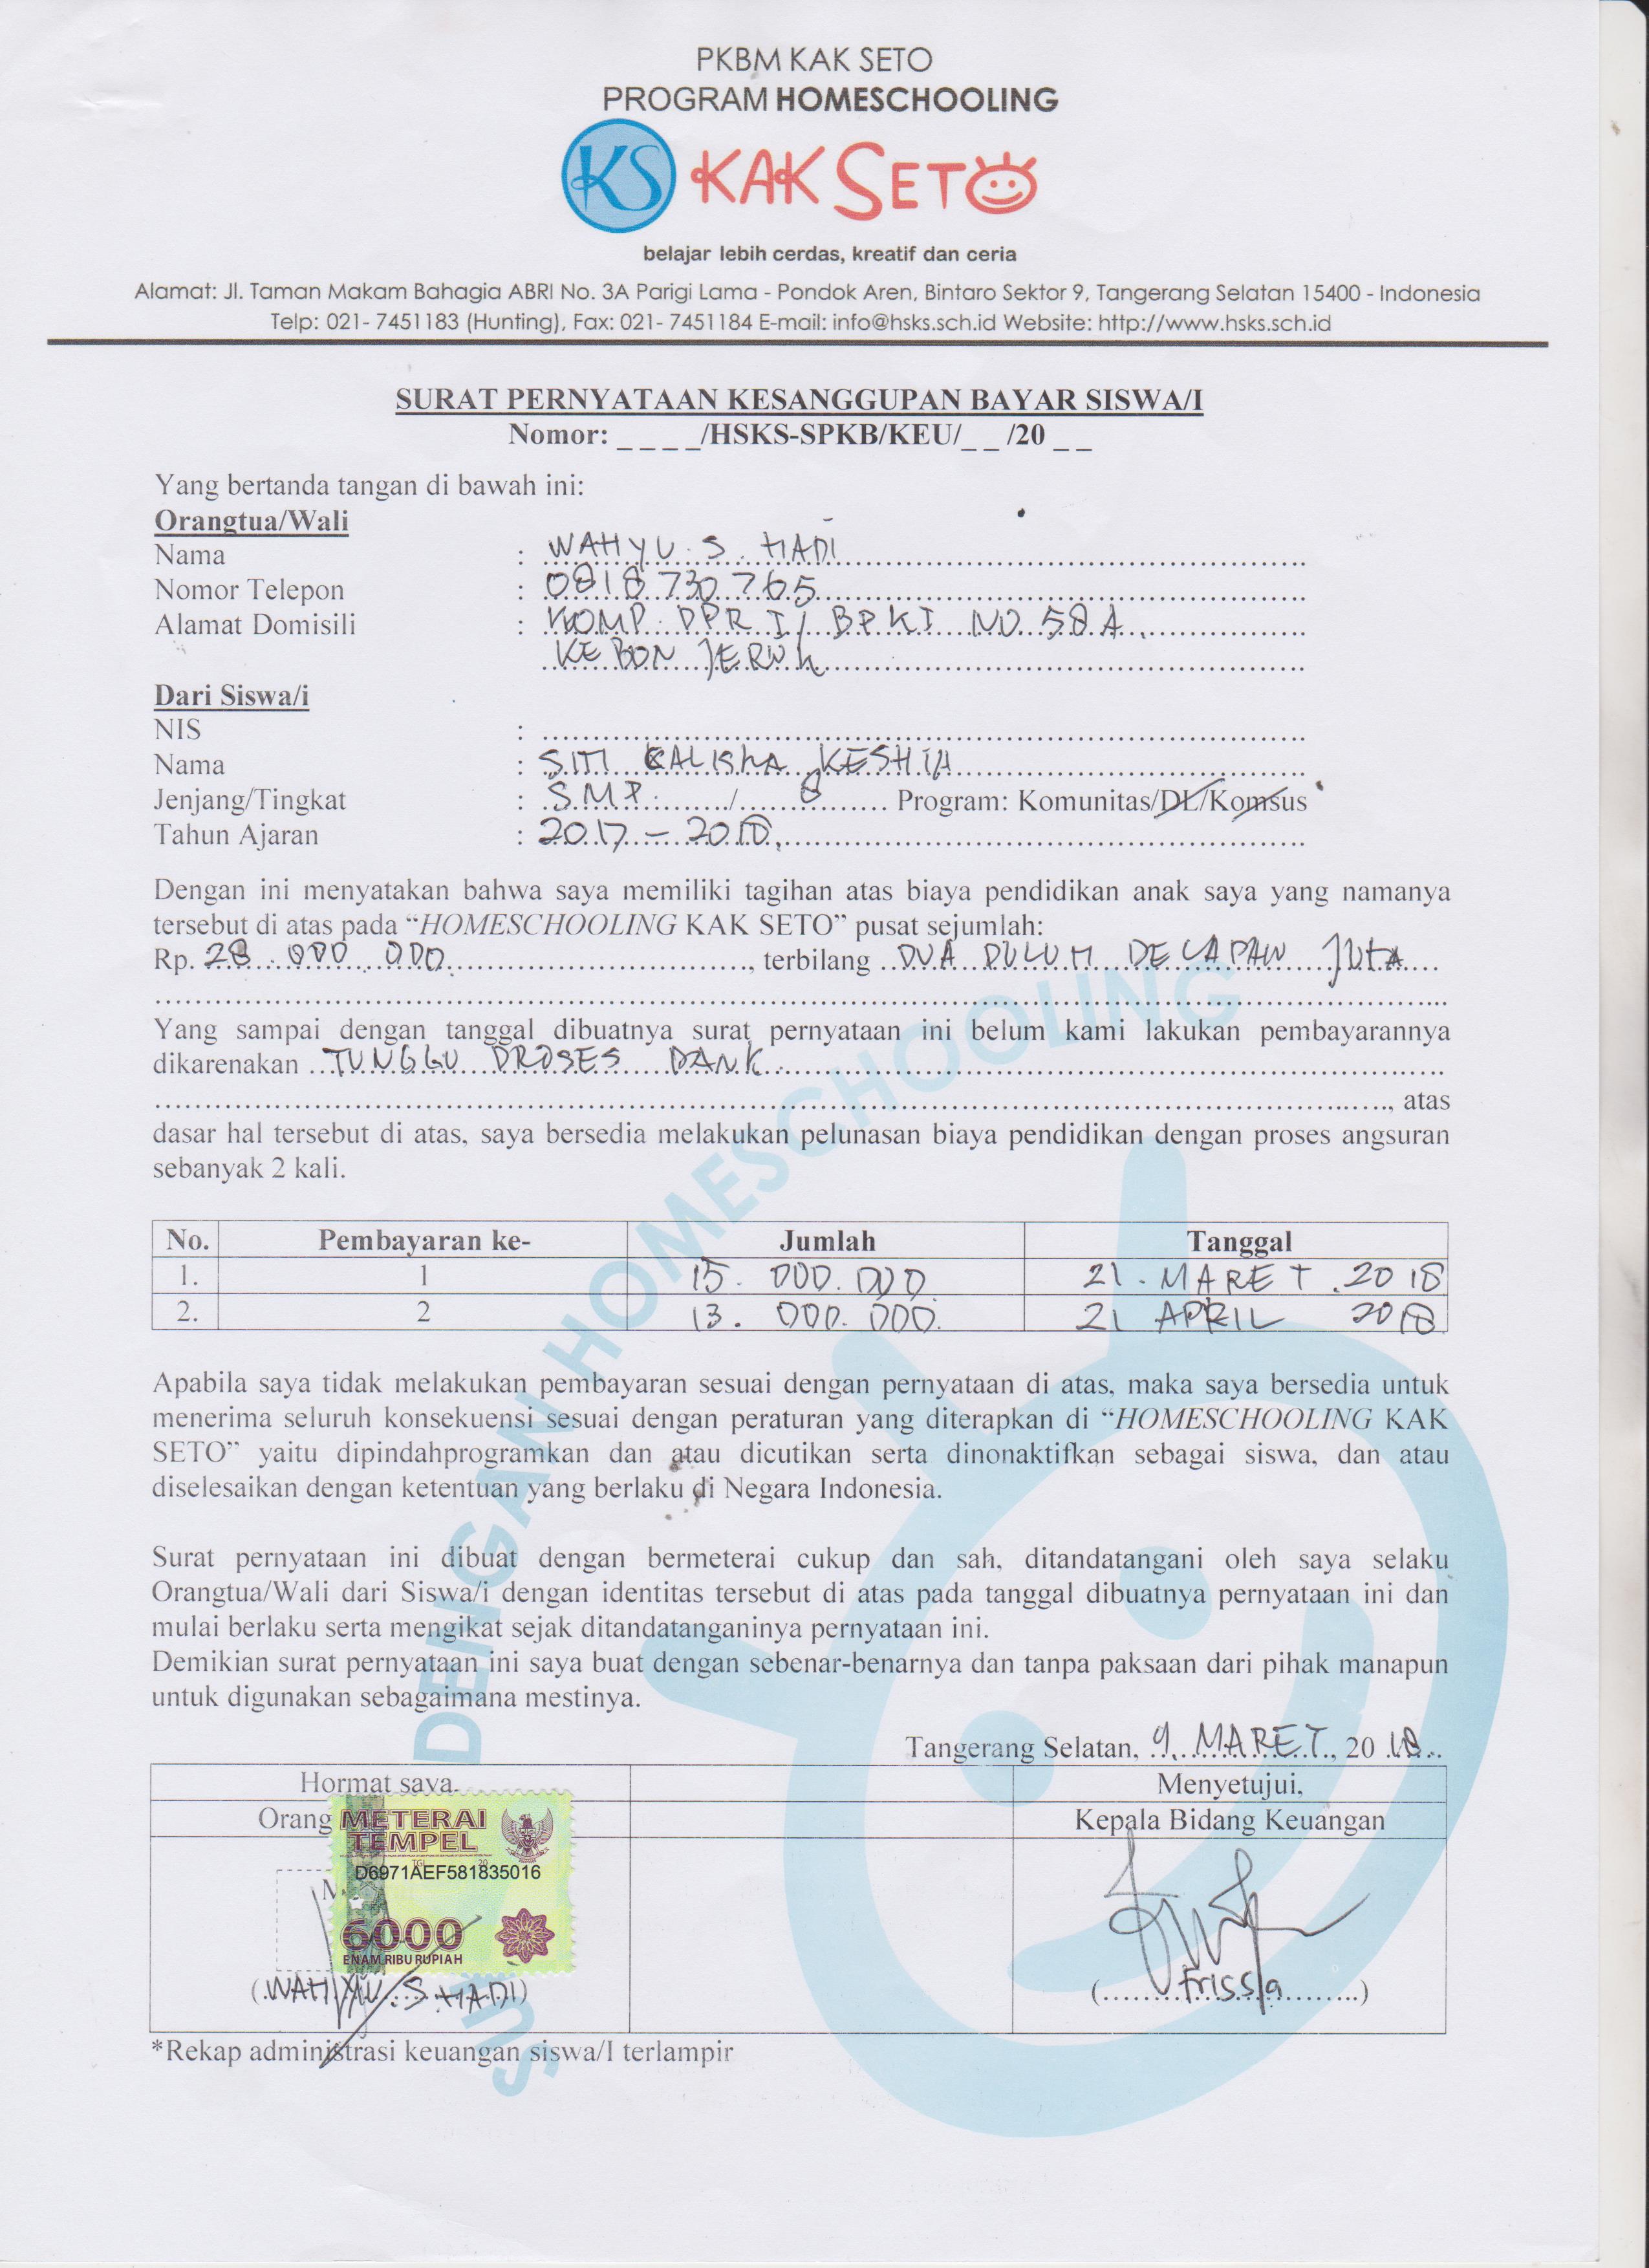 PKBM KAK SETO
PROGRAM HOMESCHOOLING
KS KAK SETO
belajar lebih cerdas, kreatif dan ceria
Alamat: Jl. Taman Makam Bahagia ABRI No. 3A Parigi Lama - Pondok Aren, Bintaro Sektor 9, Tangerang Selatan 15400 - Indonesia
Telp: 021- 7451183 (Hunting), Fax: 021- 7451184 E-mail: info@hsks.sch.id Website: http://www.hsks.sch.id
SURAT PERNYATAAN KESANGGUPAN BAYAR SISWA/I
Nomor: _ _ _ _/HSKS-SPKB/KEU/_ _ /20 _ _
Yang bertanda tangan di bawah ini:
Orangtua/Wali
Nama : WAHYU . S . HADI
Nomor Telepon : 0818 730 765
Alamat Domisili : KOMP. DPR I / BPKI NO 58 A.
KEBON JERUK
Dari Siswa/i
NIS :
Nama : SITI KALISHA KESHIA
Jenjang/Tingkat : SMP / 8 Program: Komunitas/DL/Komsus
Tahun Ajaran : 2017 - 2018
Dengan ini menyatakan bahwa saya memiliki tagihan atas biaya pendidikan anak saya yang namanya
tersebut di atas pada “HOMESCHOOLING KAK SETO” pusat sejumlah:
Rp. 28.000.000, terbilang DUA PULUH DELAPAN JUTA
Yang sampai dengan tanggal dibuatnya surat pernyataan ini belum kami lakukan pembayarannya
dikarenakan TUNGGU PROSES BANK
, atas
dasar hal tersebut di atas, saya bersedia melakukan pelunasan biaya pendidikan dengan proses angsuran
sebanyak 2 kali.
No. Pembayaran ke- Jumlah Tanggal
1. 1 15.000.000 21 . MARET . 2018
2. 2 13.000.000. 21 APRIL 2018
Apabila saya tidak melakukan pembayaran sesuai dengan pernyataan di atas, maka saya bersedia untuk
menerima seluruh konsekuensi sesuai dengan peraturan yang diterapkan di “HOMESCHOOLING KAK
SETO” yaitu dipindahprogramkan dan atau dicutikan serta dinonaktifkan sebagai siswa, dan atau
diselesaikan dengan ketentuan yang berlaku di Negara Indonesia.
Surat pernyataan ini dibuat dengan bermeterai cukup dan sah, ditandatangani oleh saya selaku
Orangtua/Wali dari Siswa/i dengan identitas tersebut di atas pada tanggal dibuatnya pernyataan ini dan
mulai berlaku serta mengikat sejak ditandatanganinya pernyataan ini.
Demikian surat pernyataan ini saya buat dengan sebenar-benarnya dan tanpa paksaan dari pihak manapun
untuk digunakan sebagaimana mestinya.
Tangerang Selatan, 9. MARET, 20 18
Hormat saya, Menyetujui,
Orang Kepala Bidang Keuangan
METERAI
TEMPEL
TGL 20
D6971AEF581835016
6000
ENAM RIBU RUPIAH
(WAHYU . S . HADI) (Frissla)
*Rekap administrasi keuangan siswa/I terlampir
DENGAN HOMESCHOOLING